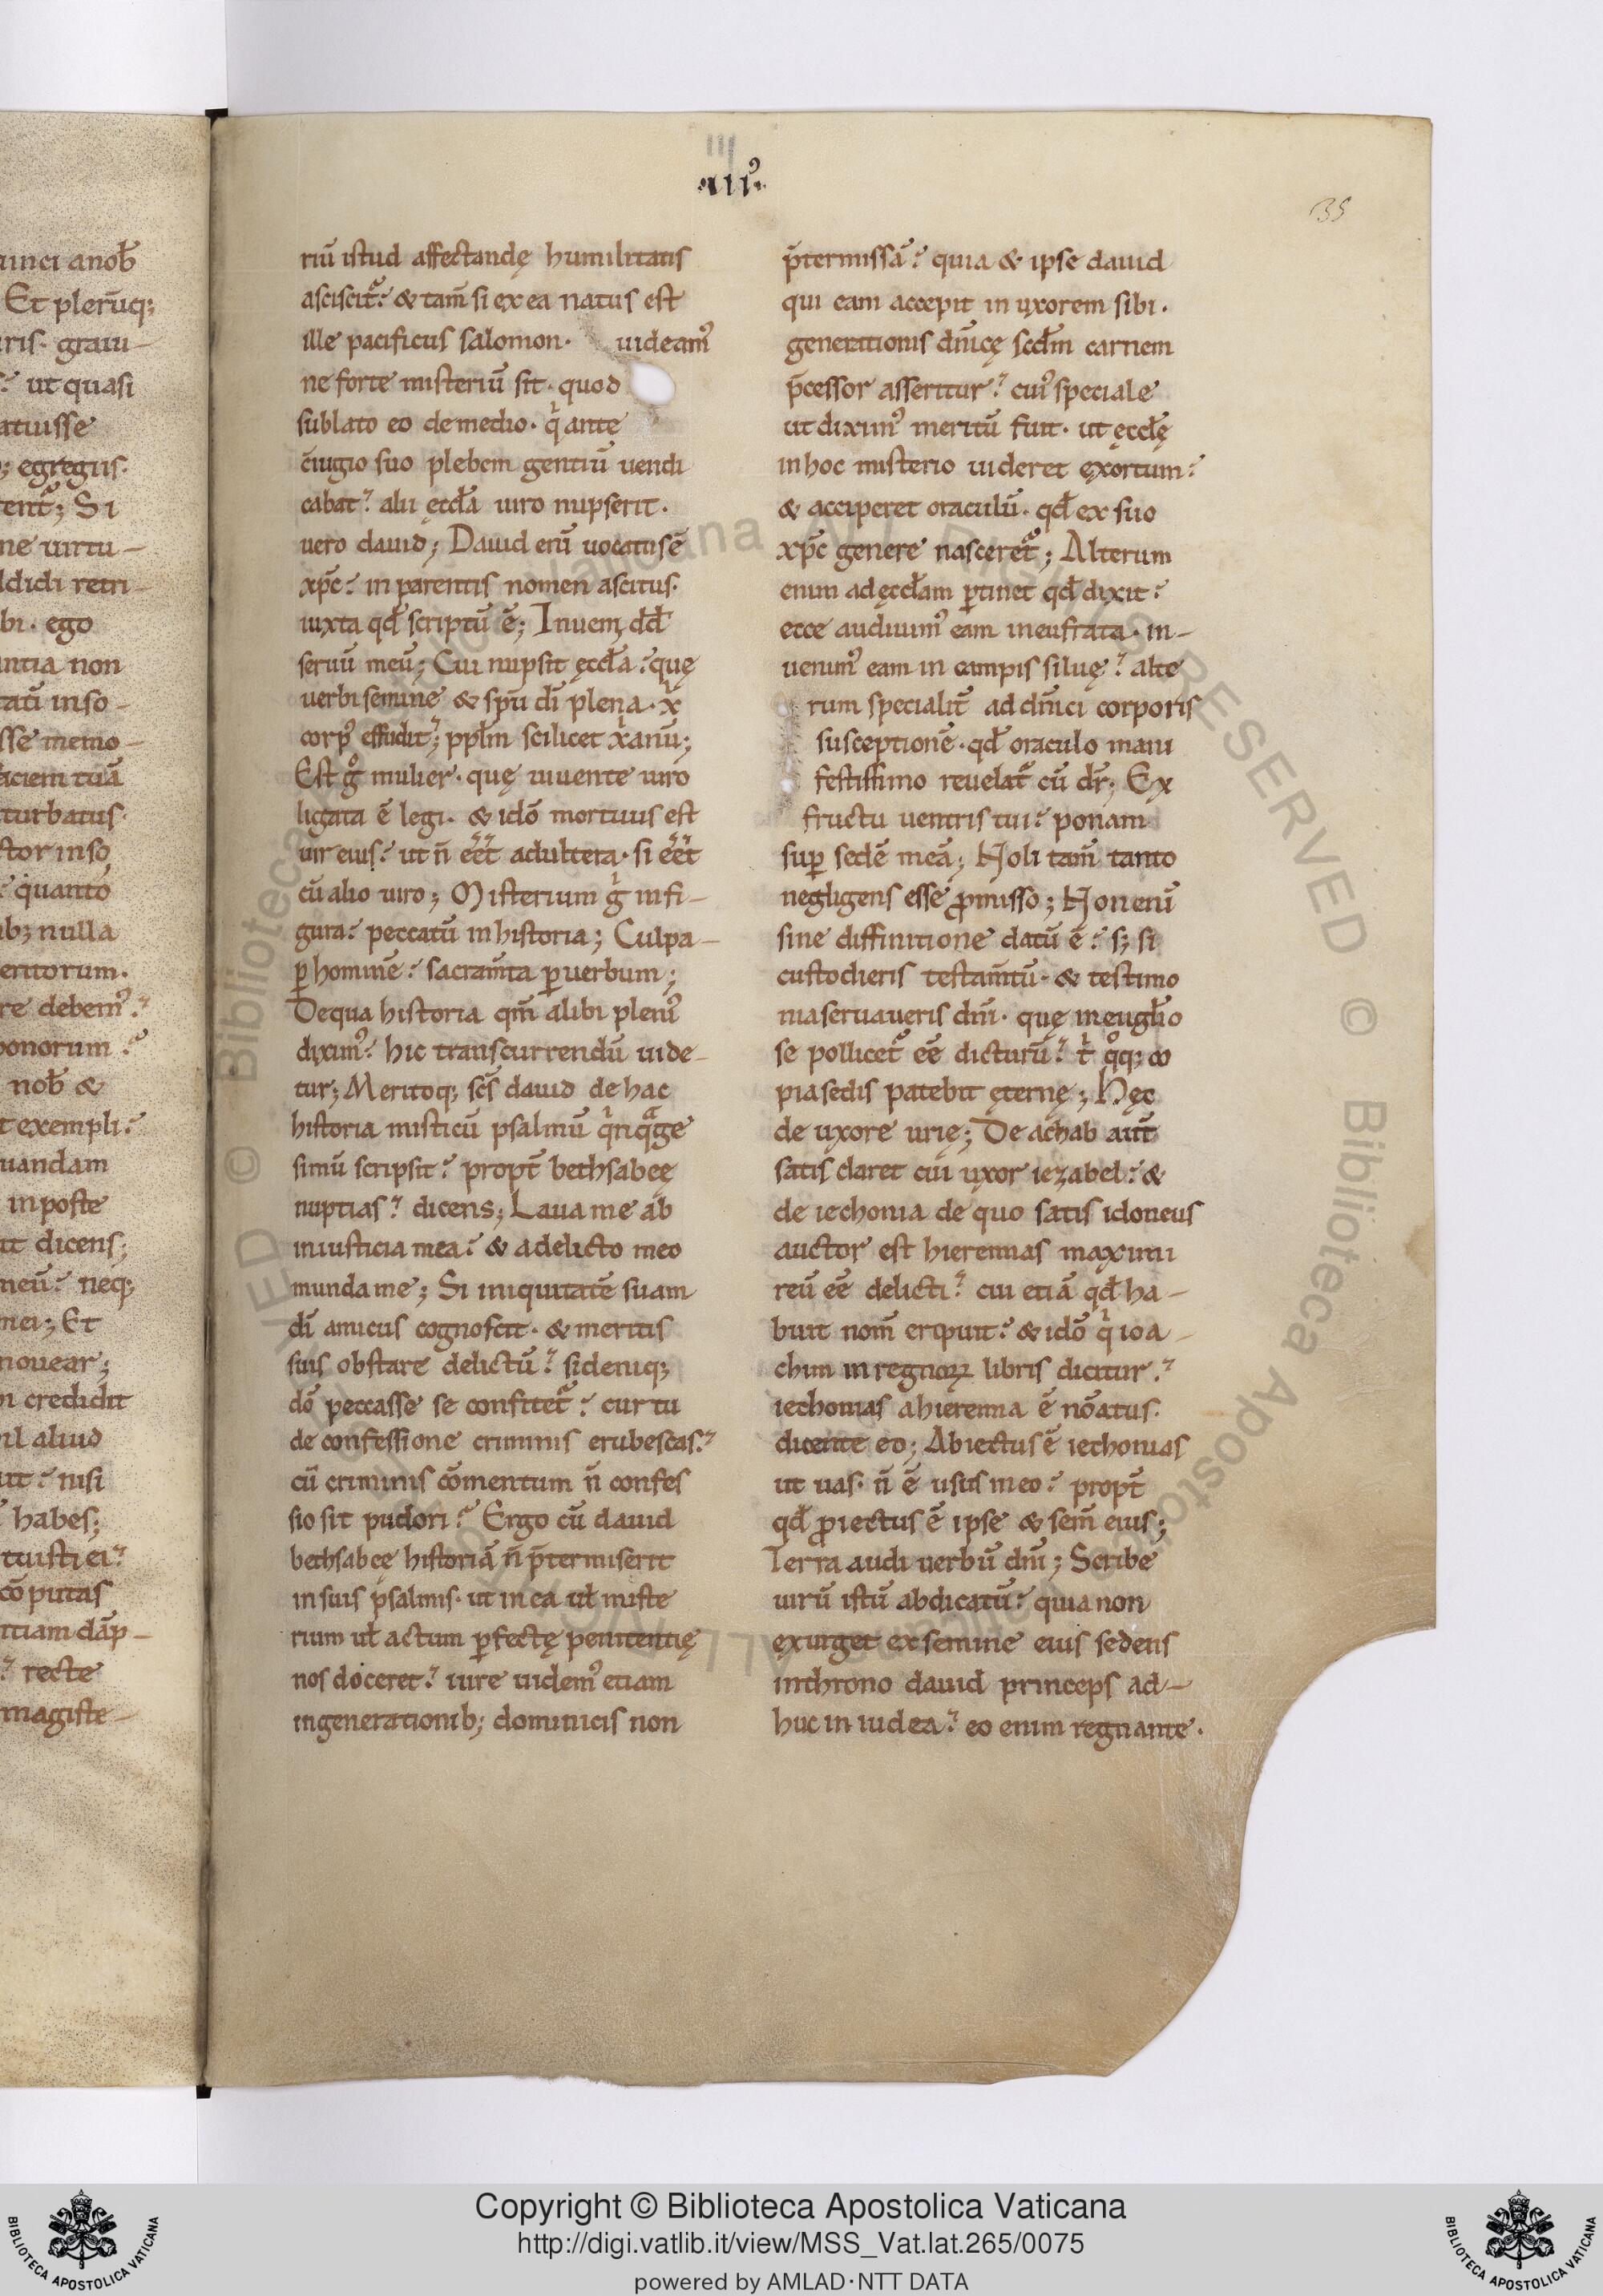 III
.aııı᷒.
35
unci anob̄
Et pleru̅q;
ris. grau-
ut quasi
atuisse
; egregiis.
tent᷑; Si
ne uirtu-
ddidi retri-
bi. ego
antia non
inso-
sse memo-
aciem tuā
turbatus.
ctor inso
quanto
b; nulla
eritorum.
re debem᷒
bonorum
nob̄ &
t exempli
uandam
in poste
it dicens;
meū neq;
mei; Et
mouear;
m credidit
il aliud
ut nisi
habes;
tuisti ei
cōputas
itiam dāp-
recte
magiste-
riū istud affectandę humilitatis
asciscit᷑ & tam̄ si ex ea natus est
ille pacificus salomon. uideam᷒
ne forte misteriū sit. quod
sublato eo de medio. qͥ ante
c̄iugio suo plebem gentiū uendi
cabat alii ęccl̄a uiro nupserit.
uero dauid; Dauid enī uocatus ē
xp̄c in parentis nomen ascitus.
iuxta qd̄ scriptū ē; Inueni dd̄
seruū meū; Cui nupsit ęccl̄a quę
uerbi semine & sp̄u dī plena. xͥ
corp᷒ effudit; ppl̄m scilicet xͥanū;
Est gͦ mulier. quę uiuente uiro
ligata ē legi. & idō mortuus est
uir eius ut n̄ eēt adultera. si eēt
cū alio uiro; Misterium gͥ in fi-
gura peccatū in historia; Culpa-
ꝑ hominē sacram̄ta ꝑ uerbum;
De qua historia qm̄ alibi pleni᷒
dixim᷒ hic transcurrendū uide-
tur; Meritoq; sc̄s dauid de hac
historia misticū psalmū qͥnqᵃge
simū scripsit propt̄ bethsabeę
nuptias dicens; Laua me ab
iniusticia mea & a delicto meo
munda me; Si iniquitatē suam
dī amicus cognoscit. & meritis
suis obstare delictū si deniq;
dō peccasse se confitet᷑ cur tu
de confessione criminis erubescas
cū criminis cōmentum n̄ confes
sio sit pudori Ergo cū dauid
bethsabeę historiā n̄ p̄termiserit
in suis psalmis. ut in ea ul̄ miste
rium ul̄ actum ꝑfectę penitentię
nos doceret iure uidem᷒ etiam
in generationib; dominicis non
p̄termissā quia & ipse dauid
qui eam accepit in uxorem sibi.
generationis dn̄icę scd̄m carnem
p̄cessor asseritur cui᷒ speciale
ut dixim᷒ meritū fuit. ut ęccl̄ę
in hoc misterio uideret exortum
& acciperet oraculū. qd̄ ex suo
xp̄c genere nasceret᷑; Alterum
enim ad ęccl̄am ꝑtinet qd̄ dixit
ecce audiuim᷒ eam in eufrata. in-
uenim᷒ eam in campis siluę alte
rum specialit̄ ad dn̄ici corporis
susceptionē. qd̄ oraculo mani
festissimo reuelat᷑ cū dr̄; Ex
fructu uentris tui ponam
suꝑ sedē meā; Noli tam̄ tanto
negligens esse ꝓmisso; Non enī
sine diffinitione datū ē s; si
custodieris testam̄tū. & testimo
nia seruaueris dn̄i. quę in eugl̄io
se pollicet᷑ eē dicturū tͥ qͦq; co
pia sedis patebit ęternę; Hęc
de uxore urię; De achab aut̄
satis claret cui uxor iezabel &
de iechonia de quo satis idoneus
auctor est hieremias maximi
reū eē delicti cui etiā qd̄ ha-
buit nom̄ eripuit & idō qͥ ioa-
chim in regnoꝝ libris dicitur
iechonias a hieremia ē nōatus.
dicente eo; Abiectus ē iechonias
ut uas. n̄ ē usus meo propt̄
qd̄ ꝓiectus ē ipse & sem̄ eius;
Terra audi uerbū dn̄i; Scribe
uirū istū abdicatū quia non
exurget ex semine eius sedens
in throno dauid princeps ad-
huc in iudea eo enim regnante.
Copyright © Biblioteca Apostolica Vaticana
http://digi.vatlib.it/view/MSS_Vat.lat.265/0075
powered by AMLAD·NTT DATA
BIBLIOTECA APOSTOLICA VATICANA
BIBLIOTECA APOSTOLICA VATICANA